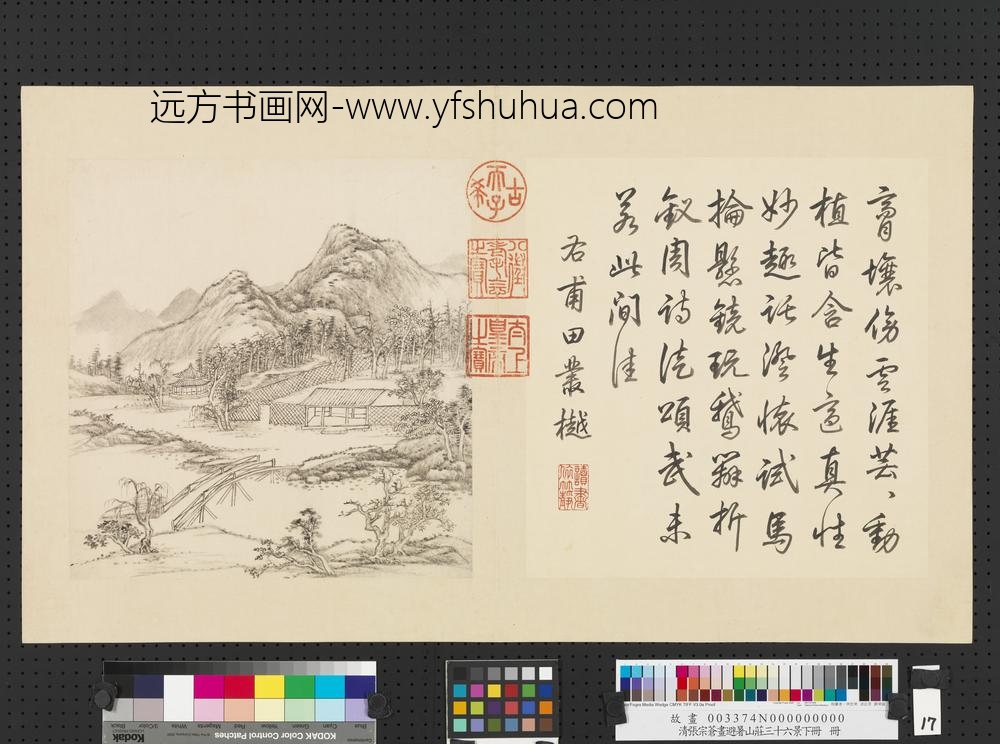 远方书画网-www.yfshuhua.com
膏壤傍雲涯芸〻動
植皆含生適真性
妙趣託澄懷試馬
掄懸鏡玩鵝辨折
釵周詩徒頌武未
若此間佳
右甫田叢樾
古希天子
八徵耄念之寶
太上皇帝之寶
KODAK Color Control Patches
Kodak
Blue Cyan Green Yellow Red Magenta White 3/Color Black
故畫 003374N000000000
清張宗蒼畫避暑山莊三十六景下冊 冊
17